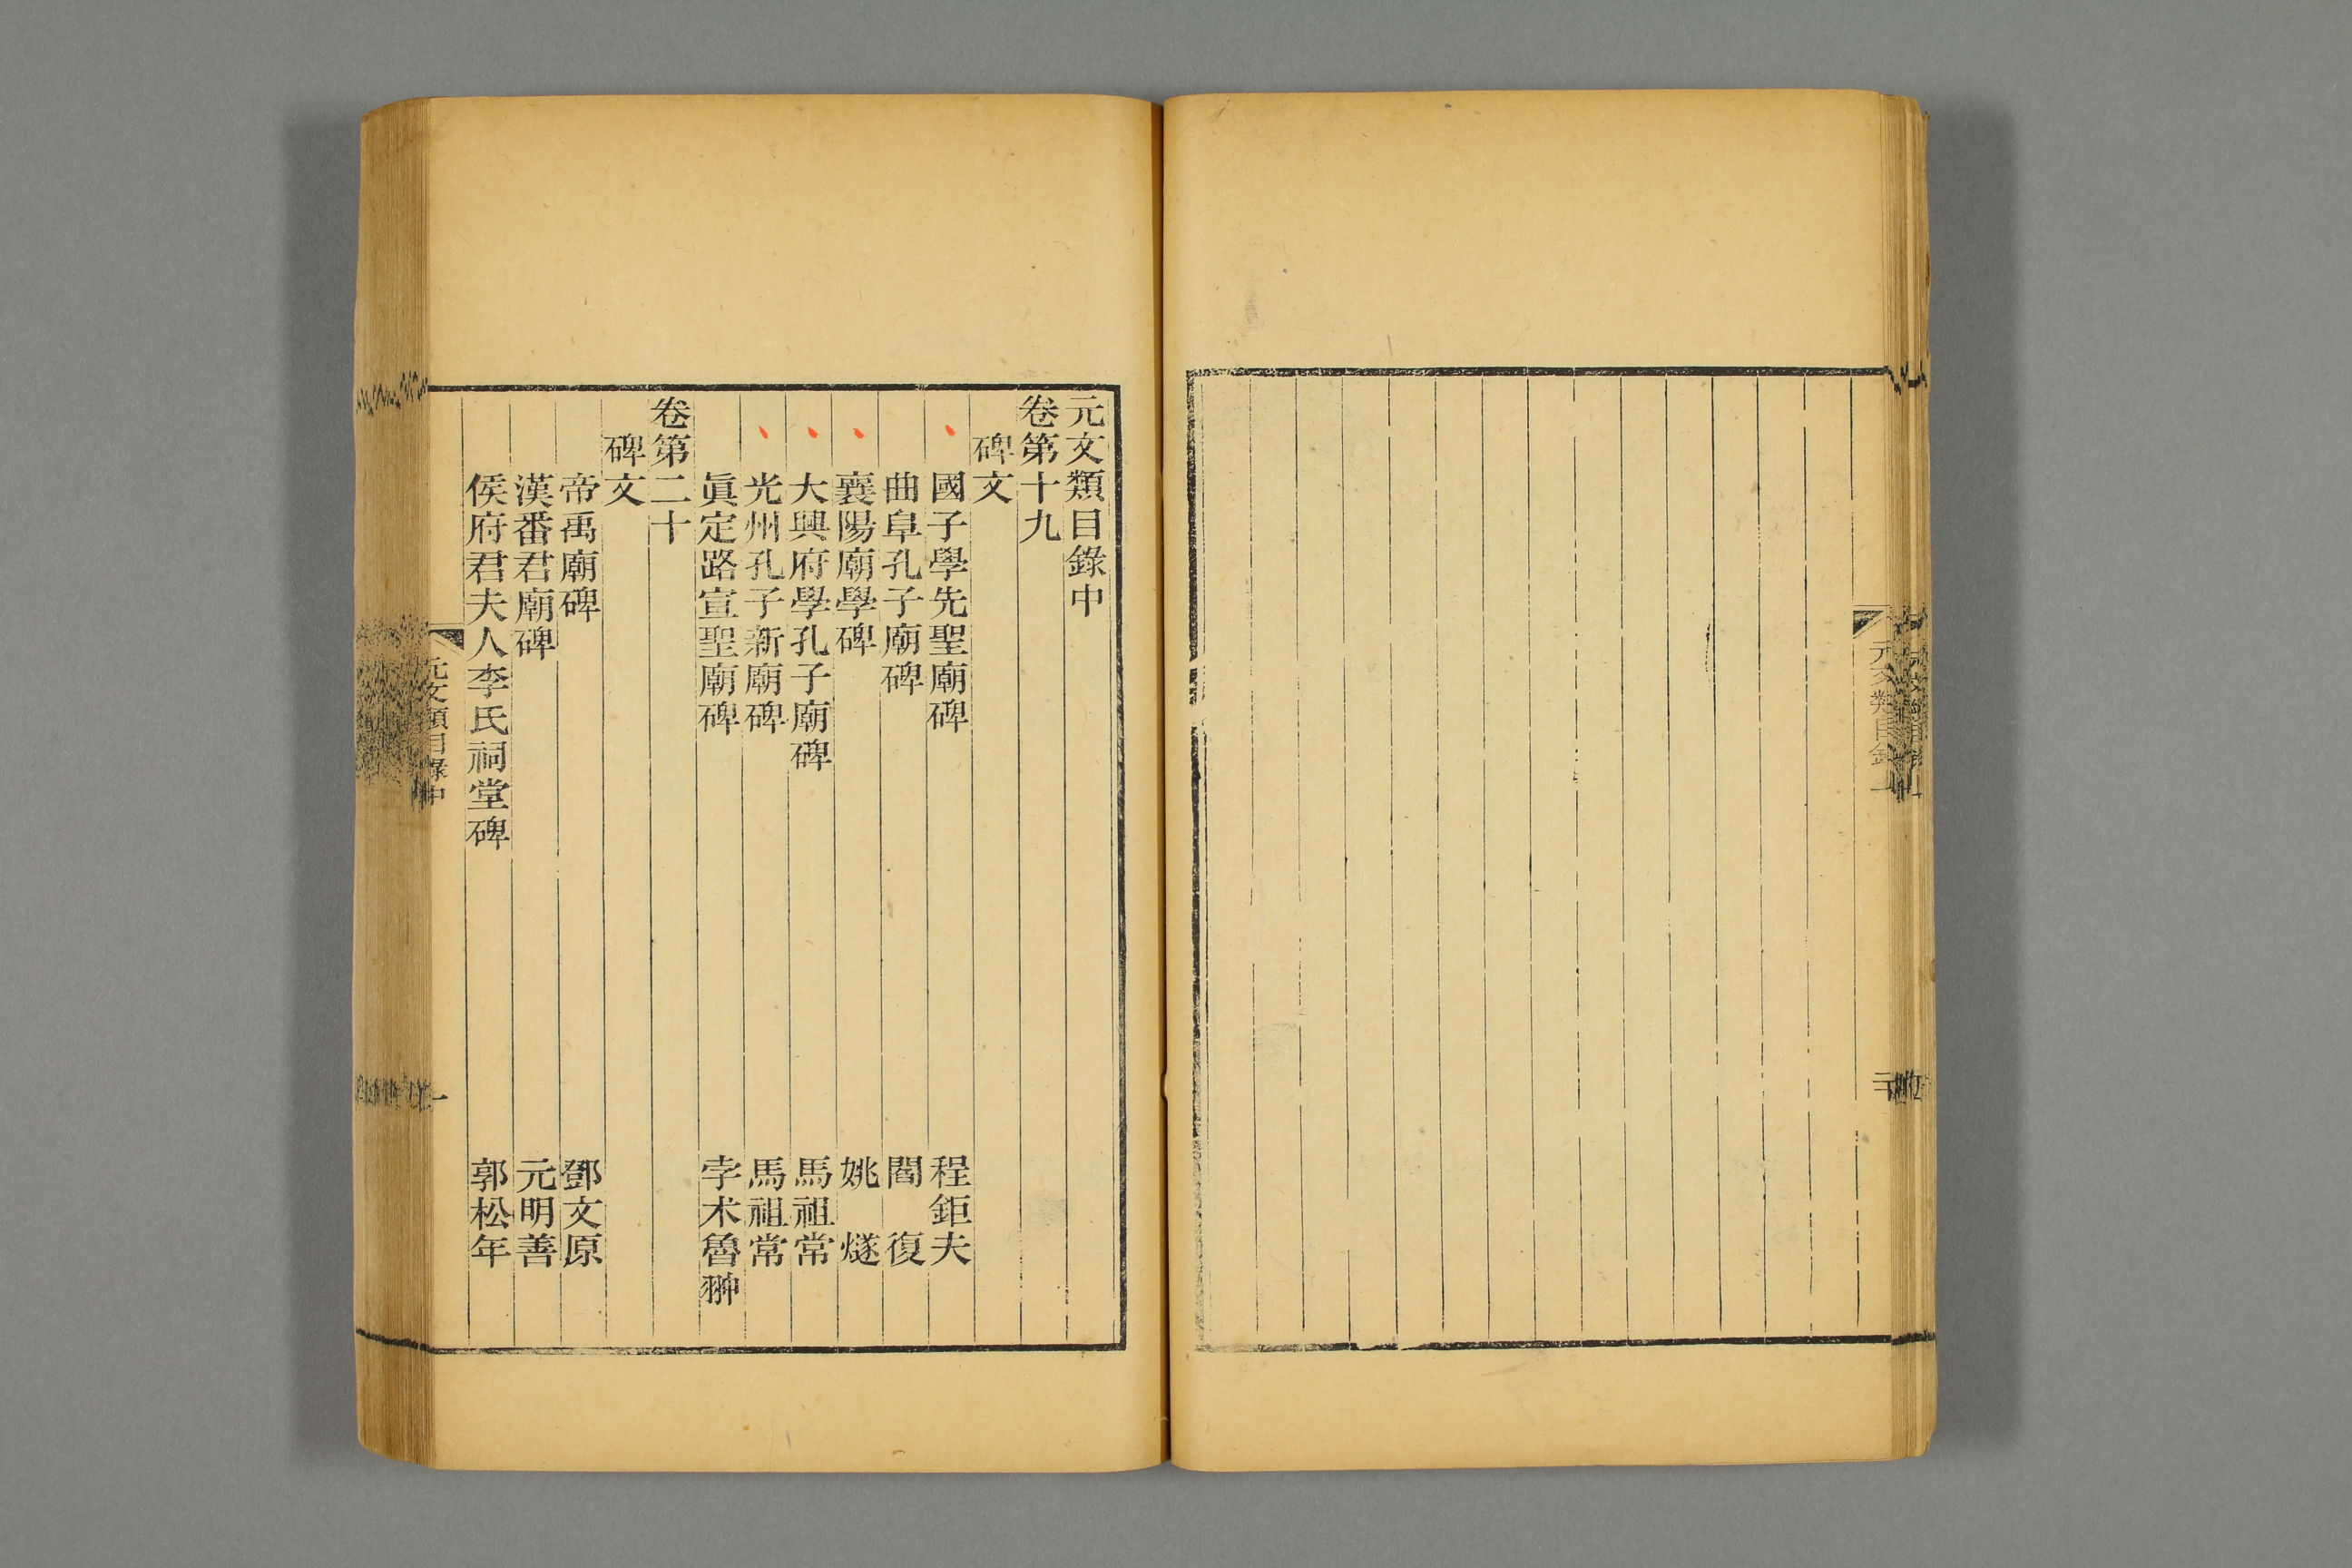 元文類目錄
元文類目錄中
卷第十九
碑文
國子學先聖廟碑 程鉅夫
曲阜孔子廟碑 閻復
襄陽廟學碑 姚燧
大興府學孔子廟碑 馬祖常
光州孔子新廟碑 馬祖常
眞定路宣聖廟碑 孛术魯翀
卷第二十
碑文
帝禹廟碑 鄧文原
漢番君廟碑 元明善
侯府君夫人李氏祠堂碑 郭松年
元文類目錄中 一